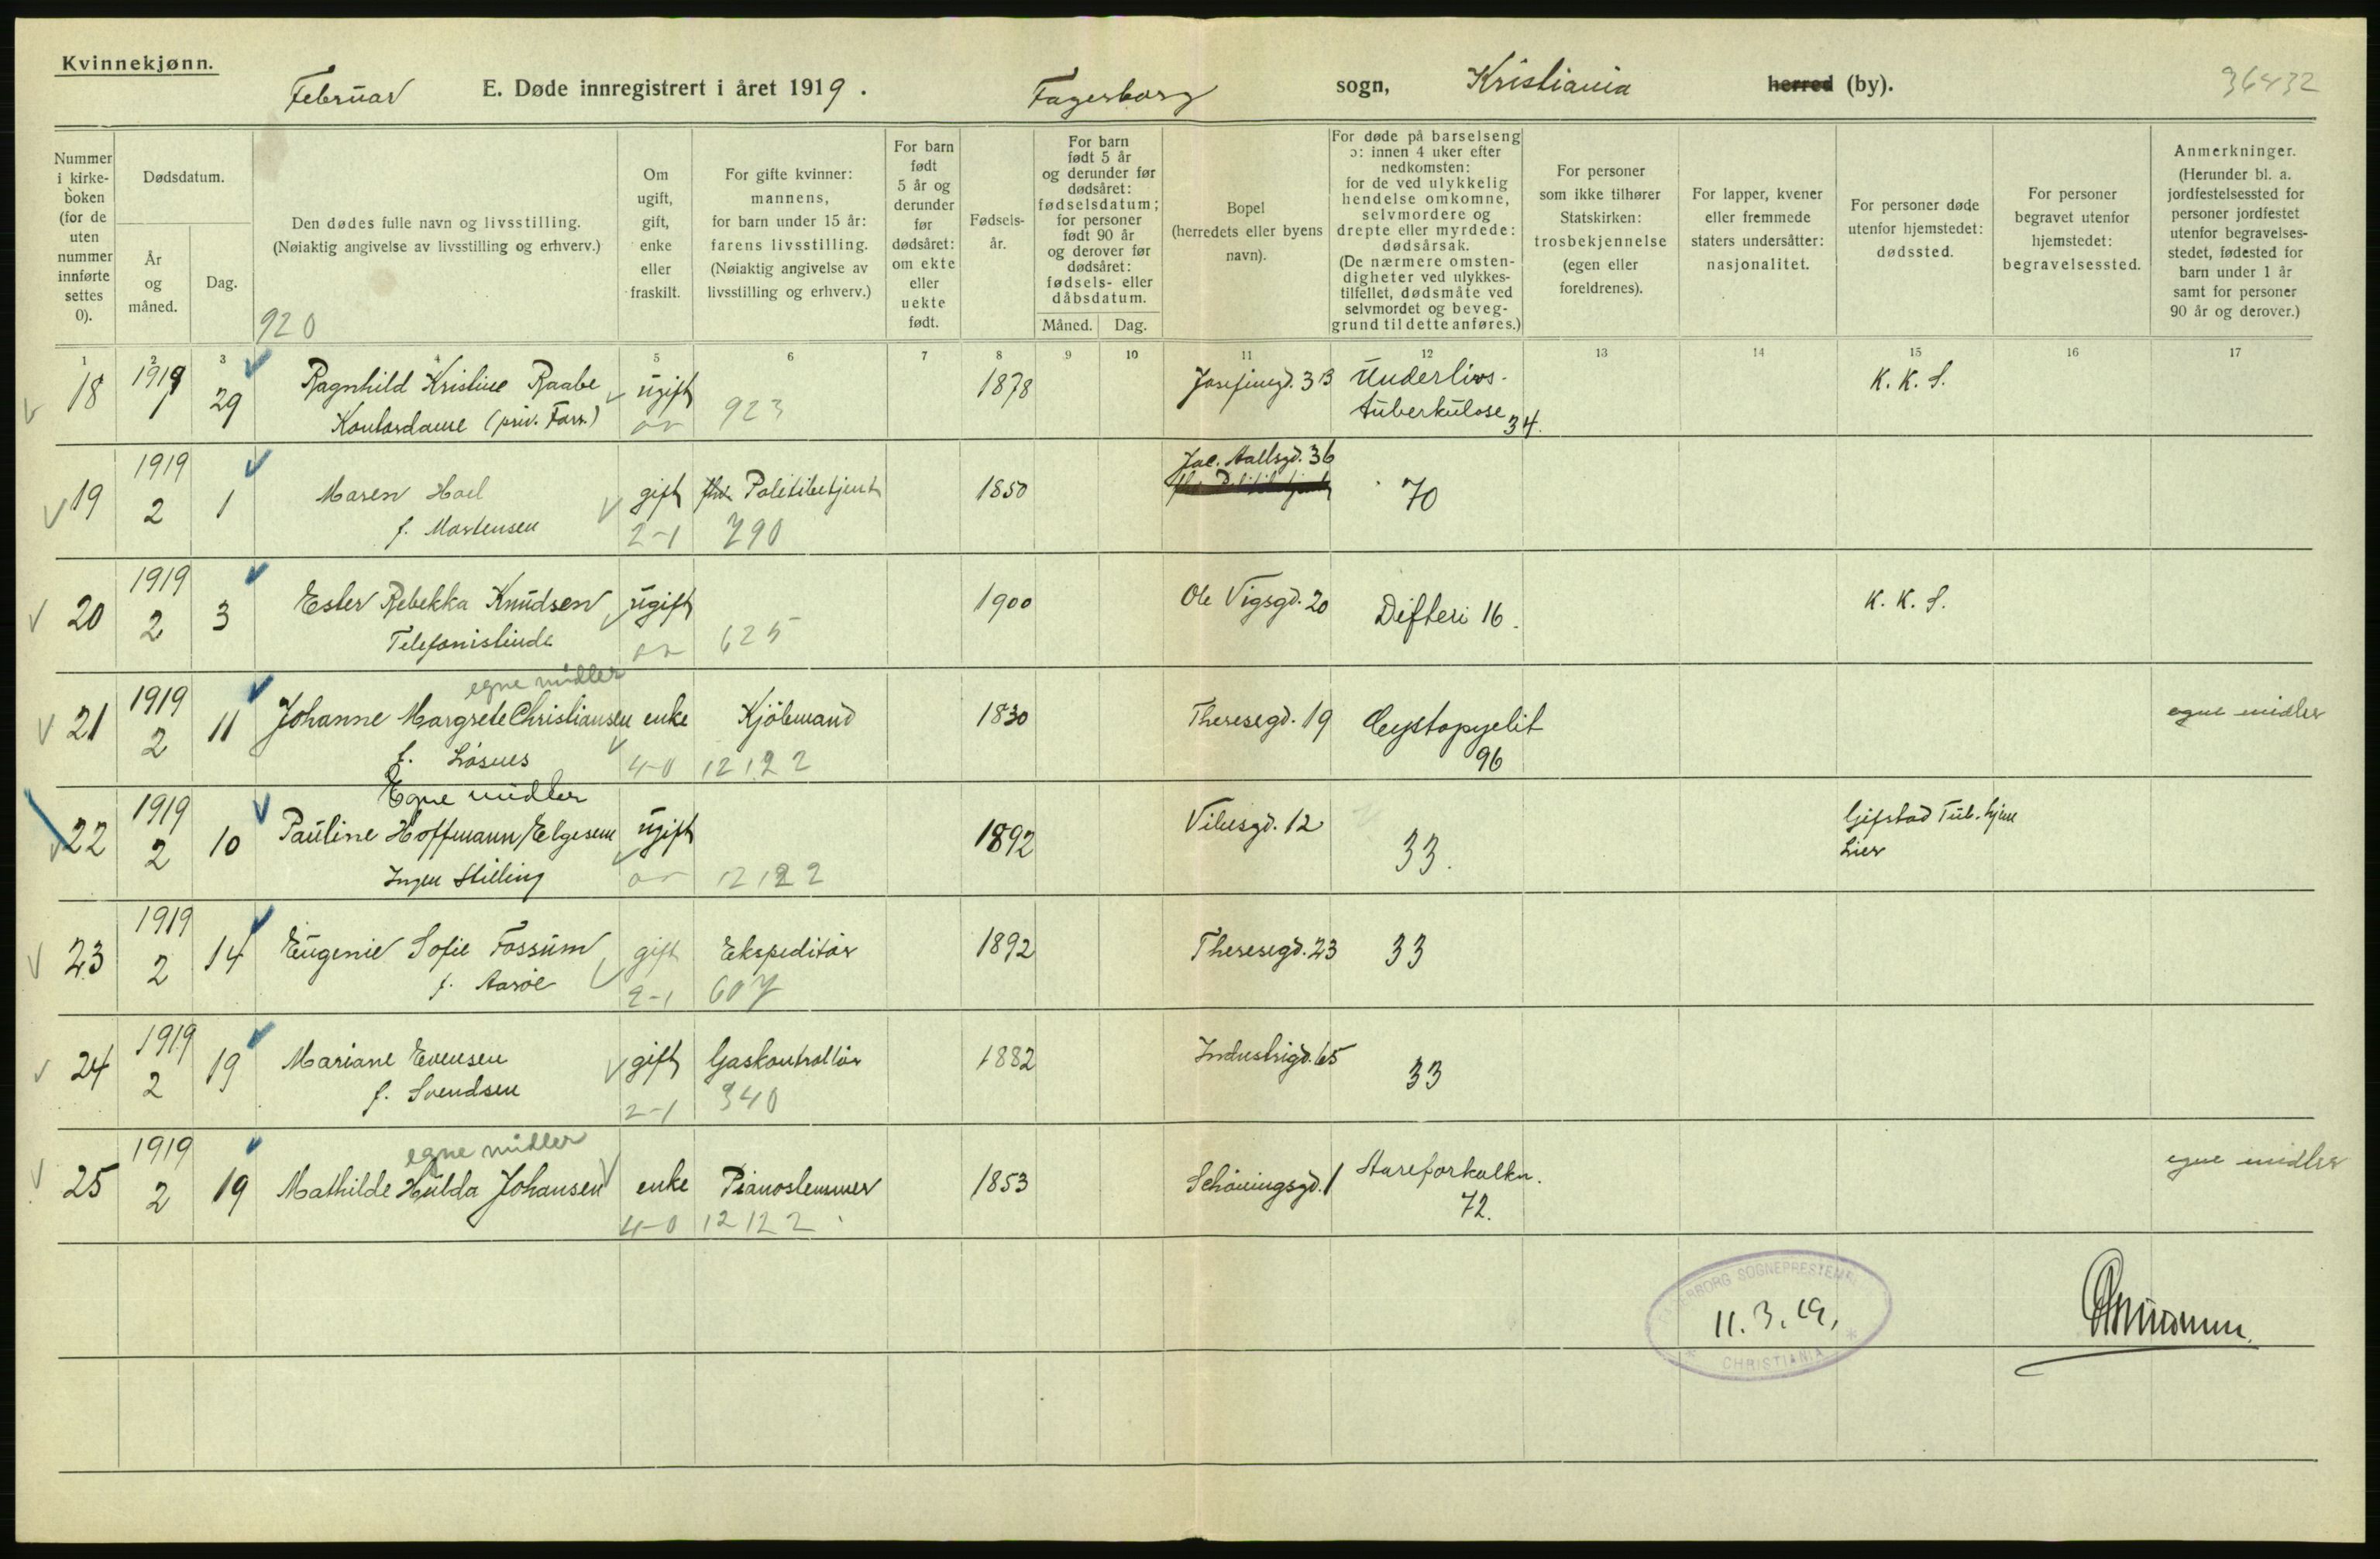 Kvinnekjønn.
Februar E. Døde innregistrert i året 1919. Fagerborg sogn, Kristiania herred (by). 36432
Nummer i kirke-boken (for de uten nummer innførte settes 0).
Dødsdatum.
År og måned.
Dag.
Den dødes fulle navn og livsstilling.
(Nøiaktig angivelse av livsstilling og erhverv.)
920
Om ugift, gift, enke eller fraskilt.
For gifte kvinner: mannens, for barn under 15 år: farens livsstilling. (Nøiaktig angivelse av livsstilling og erhverv.)
For barn født 5 år og derunder før dødsåret: om ekte eller uekte født.
Fødsels-år.
For barn født 5 år og derunder før dødsåret: fødselsdatum; for personer født 90 år og derover før dødsåret: fødsels- eller dåbsdatum.
Måned. Dag.
Bopel (herredets eller byens navn).
For døde på barselseng ɔ: innen 4 uker efter nedkomsten: for de ved ulykkelig hendelse omkomne, selvmordere og drepte eller myrdede: dødsårsak. (De nærmere omsten-digheter ved ulykkes-tilfellet, dødsmåte ved selvmordet og beveg-grund til dette anføres.)
For personer som ikke tilhører Statskirken: trosbekjennelse (egen eller foreldrenes).
For lapper, kvener eller fremmede staters undersåtter: nasjonalitet.
For personer døde utenfor hjemstedet: dødssted.
For personer begravet utenfor hjemstedet: begravelsessted.
Anmerkninger. (Herunder bl. a. jordfestelsessted for personer jordfestet utenfor begravelses-stedet, fødested for barn under 1 år samt for personer 90 år og derover.)
1 2 3 4 5 6 7 8 9 10 11 12 13 14 15 16 17
18 1919 1 29 Ragnhild Kristine Raabe ugift 1878 Josefinegd. 313 Underlivs- K. K. S.
Kontordame (priv. Forr.) 923 tuberkulose 34.
19 1919 2 1 Maren Hoel gift Politibetjent 1850 Jac. Aallsgd. 36 70
f. Martensen 2-1 790
20 1919 2 3 Ester Rebekka Knudsen ugift 1900 Ole Vigsgd. 20 Difteri 16. K. K. S.
Telefonistinde 625
egne midler
21 1919 2 11 Johanne Margrete Christiansen enke Kjölmand 1830 Theresegd. 19 Cystopyelit 96 egne midler
f. 4-0 12122
Egne midler
22 1919 2 10 Pauline Hoffmann Elgesem ugift 1892 Vibesgd. 12 33. Gifstad Tub. hjem Lier
Ingen Stilling 12122
23 1919 2 14 Eugenie Sofie Fossum gift Ekspeditør 1892 Theresegd. 23 33
f. Aarøe 2-1 607
24 1919 2 19 Mariane Evensen gift Gaskontrollør 1882 Industrigd. 65 33
f. Svendsen 2-1 340
egne midler
25 1919 2 19 Mathilde Hulda Johansen enke Pianostemmer 1853 Schøningsgd. 1 Aareforkalkn. 72. egne midler
4-0 12122
FAGERBORG SOGNEPRESTEMB.
11.3.19.
CHRISTIANIA